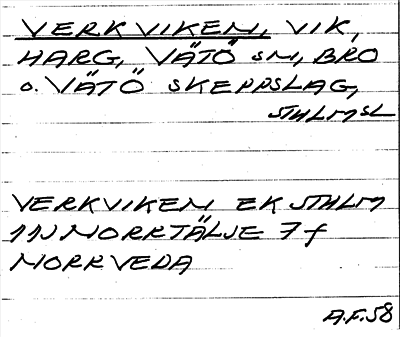 VERKVIKEN, VIK,
HARG, VÄTÖ SN, BRO
O. VÄTÖ SKEPPSLAG,
STHLMSL
VERKVIKEN EK STHLM
11N NORRTÄLJE 7 f
NORRVEDA
A.F. 58